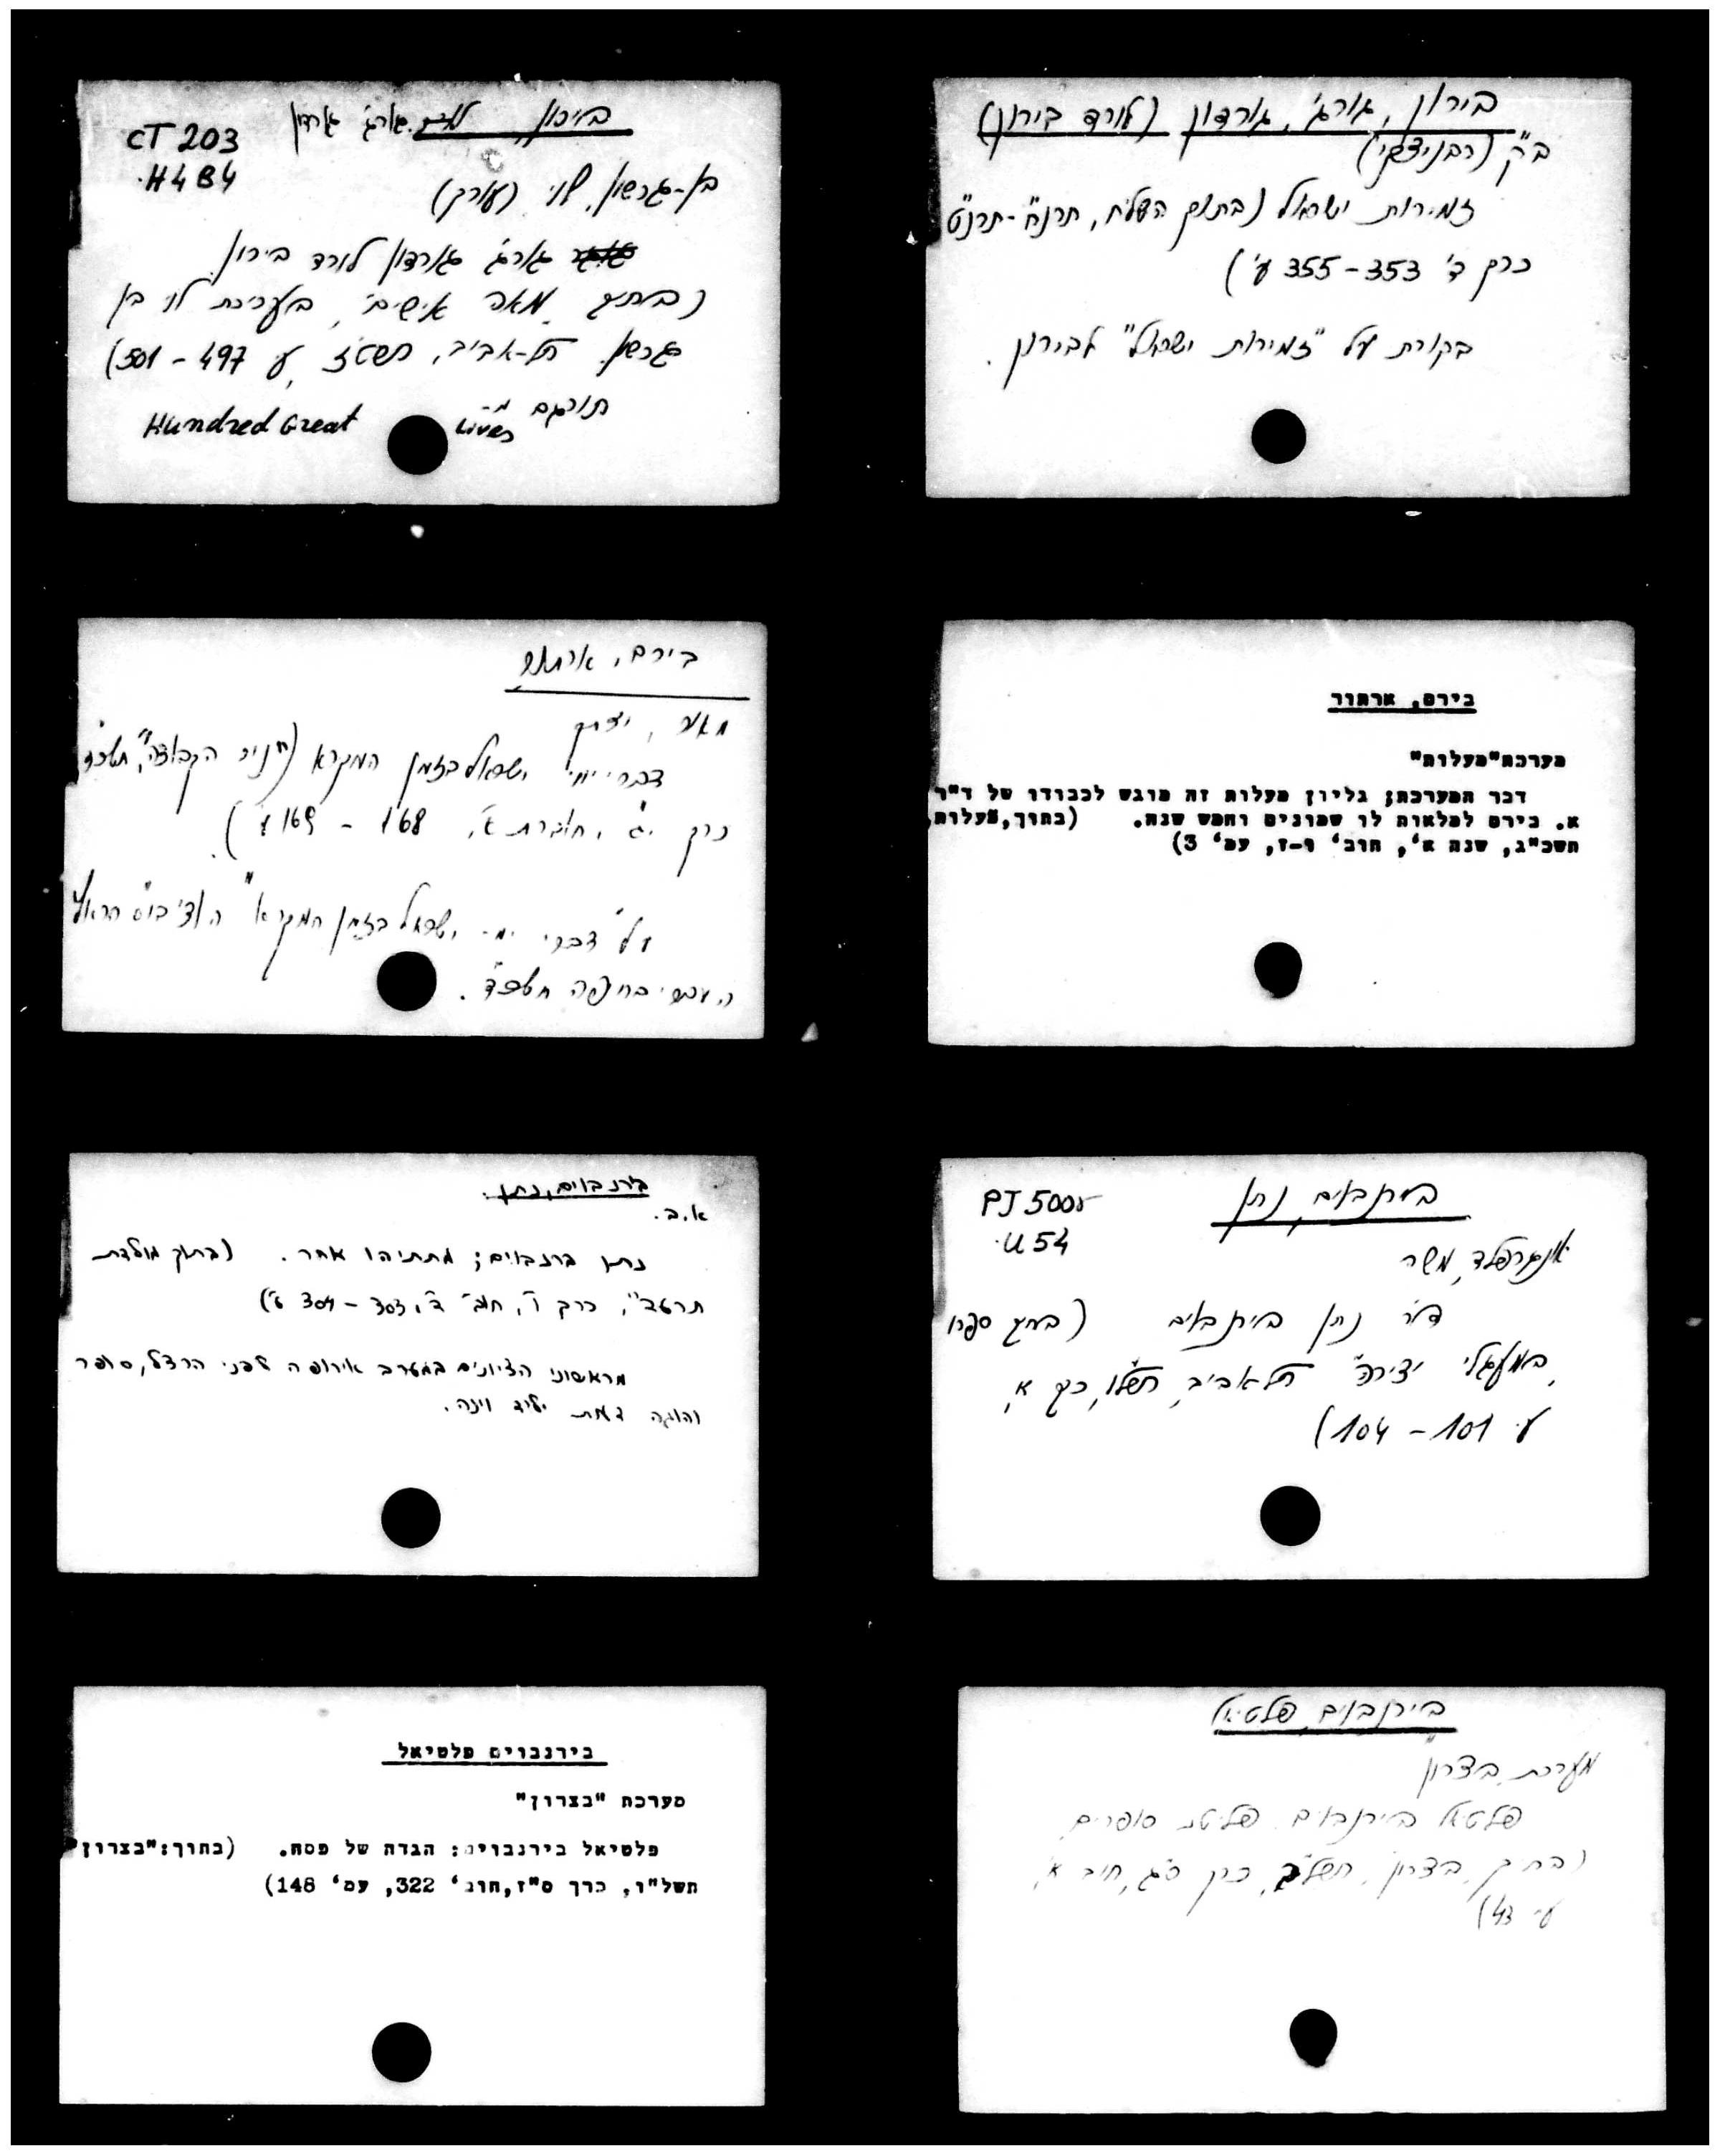 CT 203
.H4B4
בירון, לורד ג'ורג' גורדון
בן-גרשון, לוי (עורך)
ג'ורג' גורדון לורד בירון.
(בתוך "מאה אישים", בעריכת לוי בן
גרשון. תל-אביב, תשט"ז, ע' 497 - 501)
תורגם מ-
Hundred Great Lives
בירון, ג'ורג', גורדון (לורד בירון)
ב"ק (רבניצקי)
זמירות ישראל (בתוך השלח, תרנ"ח-תרנ"ט
כרך ד' 353-355 ע')
בקורת על "זמירות ישראל" לבירון.
בירם, ארתור
יצחק
דברי ימי ישראל בזמן המקרא (הקבוצה", תשכ"ד
כרך י"ג, חוברת א', 168 - 169 ע').
על "דברי ימי ישראל בזמן המקרא"
בחיפה תשכ"ד.
בירם, ארתור
מערכת"מעלות"
דבר המערכת; גליון מעלות זה מוגש לכבודו של ד"ר
א. בירם למלאות לו שמונים וחמש שנה. (בתוך,"מעלות,
תשכ"ג, שנה א', חוב' ו-ז, עמ' 3)
ברנבוים, נתן.
א.ב.
נתן ברנבוים; מתתיהו אחר. (בתוך מולדת
כרך ו', חוב' ד', 303 - 304 ע')
מראשוני הציונים במערב אירופה לפני הרצל, סופר
והוגה דעות יליד וינה.
PJ 5005
.U54
בירנבאום, נתן
אונגרפלד, משה
ד"ר נתן בירנבאום (בתוך ספרו
"במעגלי יצירה" תל אביב, תשל"ו, כרך א',
ע' 101 - 104)
בירנבוים פלטיאל
מערכת "בצרון"
פלטיאל בירנבוים: הגדה של פסח. (בתוך:"בצרון"
תשל"ו, כרך ס"ז,חוב' 322, עמ' 148)
בירנבוים, פלטיאל
מערכת "בצרון"
פלטיאל בירנבוים. פליטת סופרים.
(בתוך "בצרון", כרך ס"ג, חוב' א',
ע' 43)